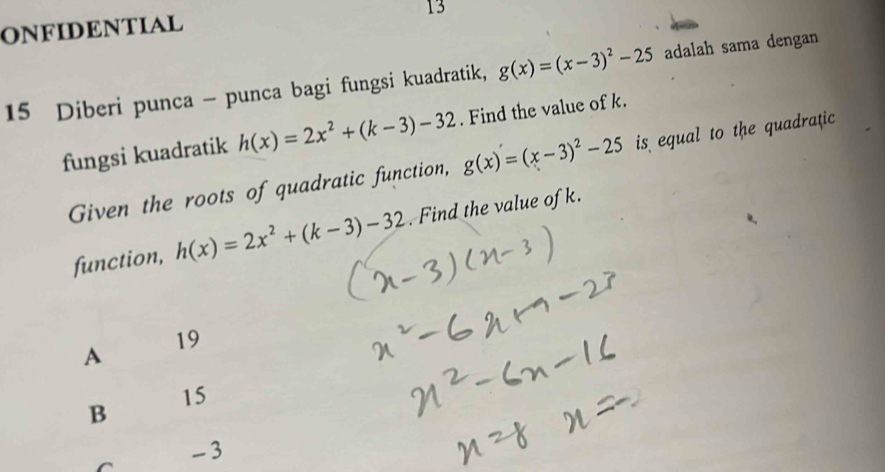 13
ONFIDENTIAL
15 Diberi punca – punca bagi fungsi kuadratik, g(x) = (x − 3)² − 25 adalah sama dengan
fungsi kuadratik h(x) = 2x² + (k − 3) − 32. Find the value of k.
Given the roots of quadratic function, g(x) = (x − 3)² − 25 is equal to the quadratic
function, h(x) = 2x² + (k − 3) − 32. Find the value of k.
(x-3)(x-3)
A 19
x² - 6x + 9 -
B 15
x² - 6x - 16
-3
x = 8 x =